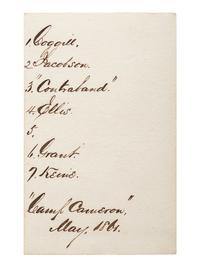 1. Coggill.
2. Jacobson.
3. "Contraband."
4. Ellis.
5.
6. Grant.
7.
"Camp Cameron",
May, 1861.